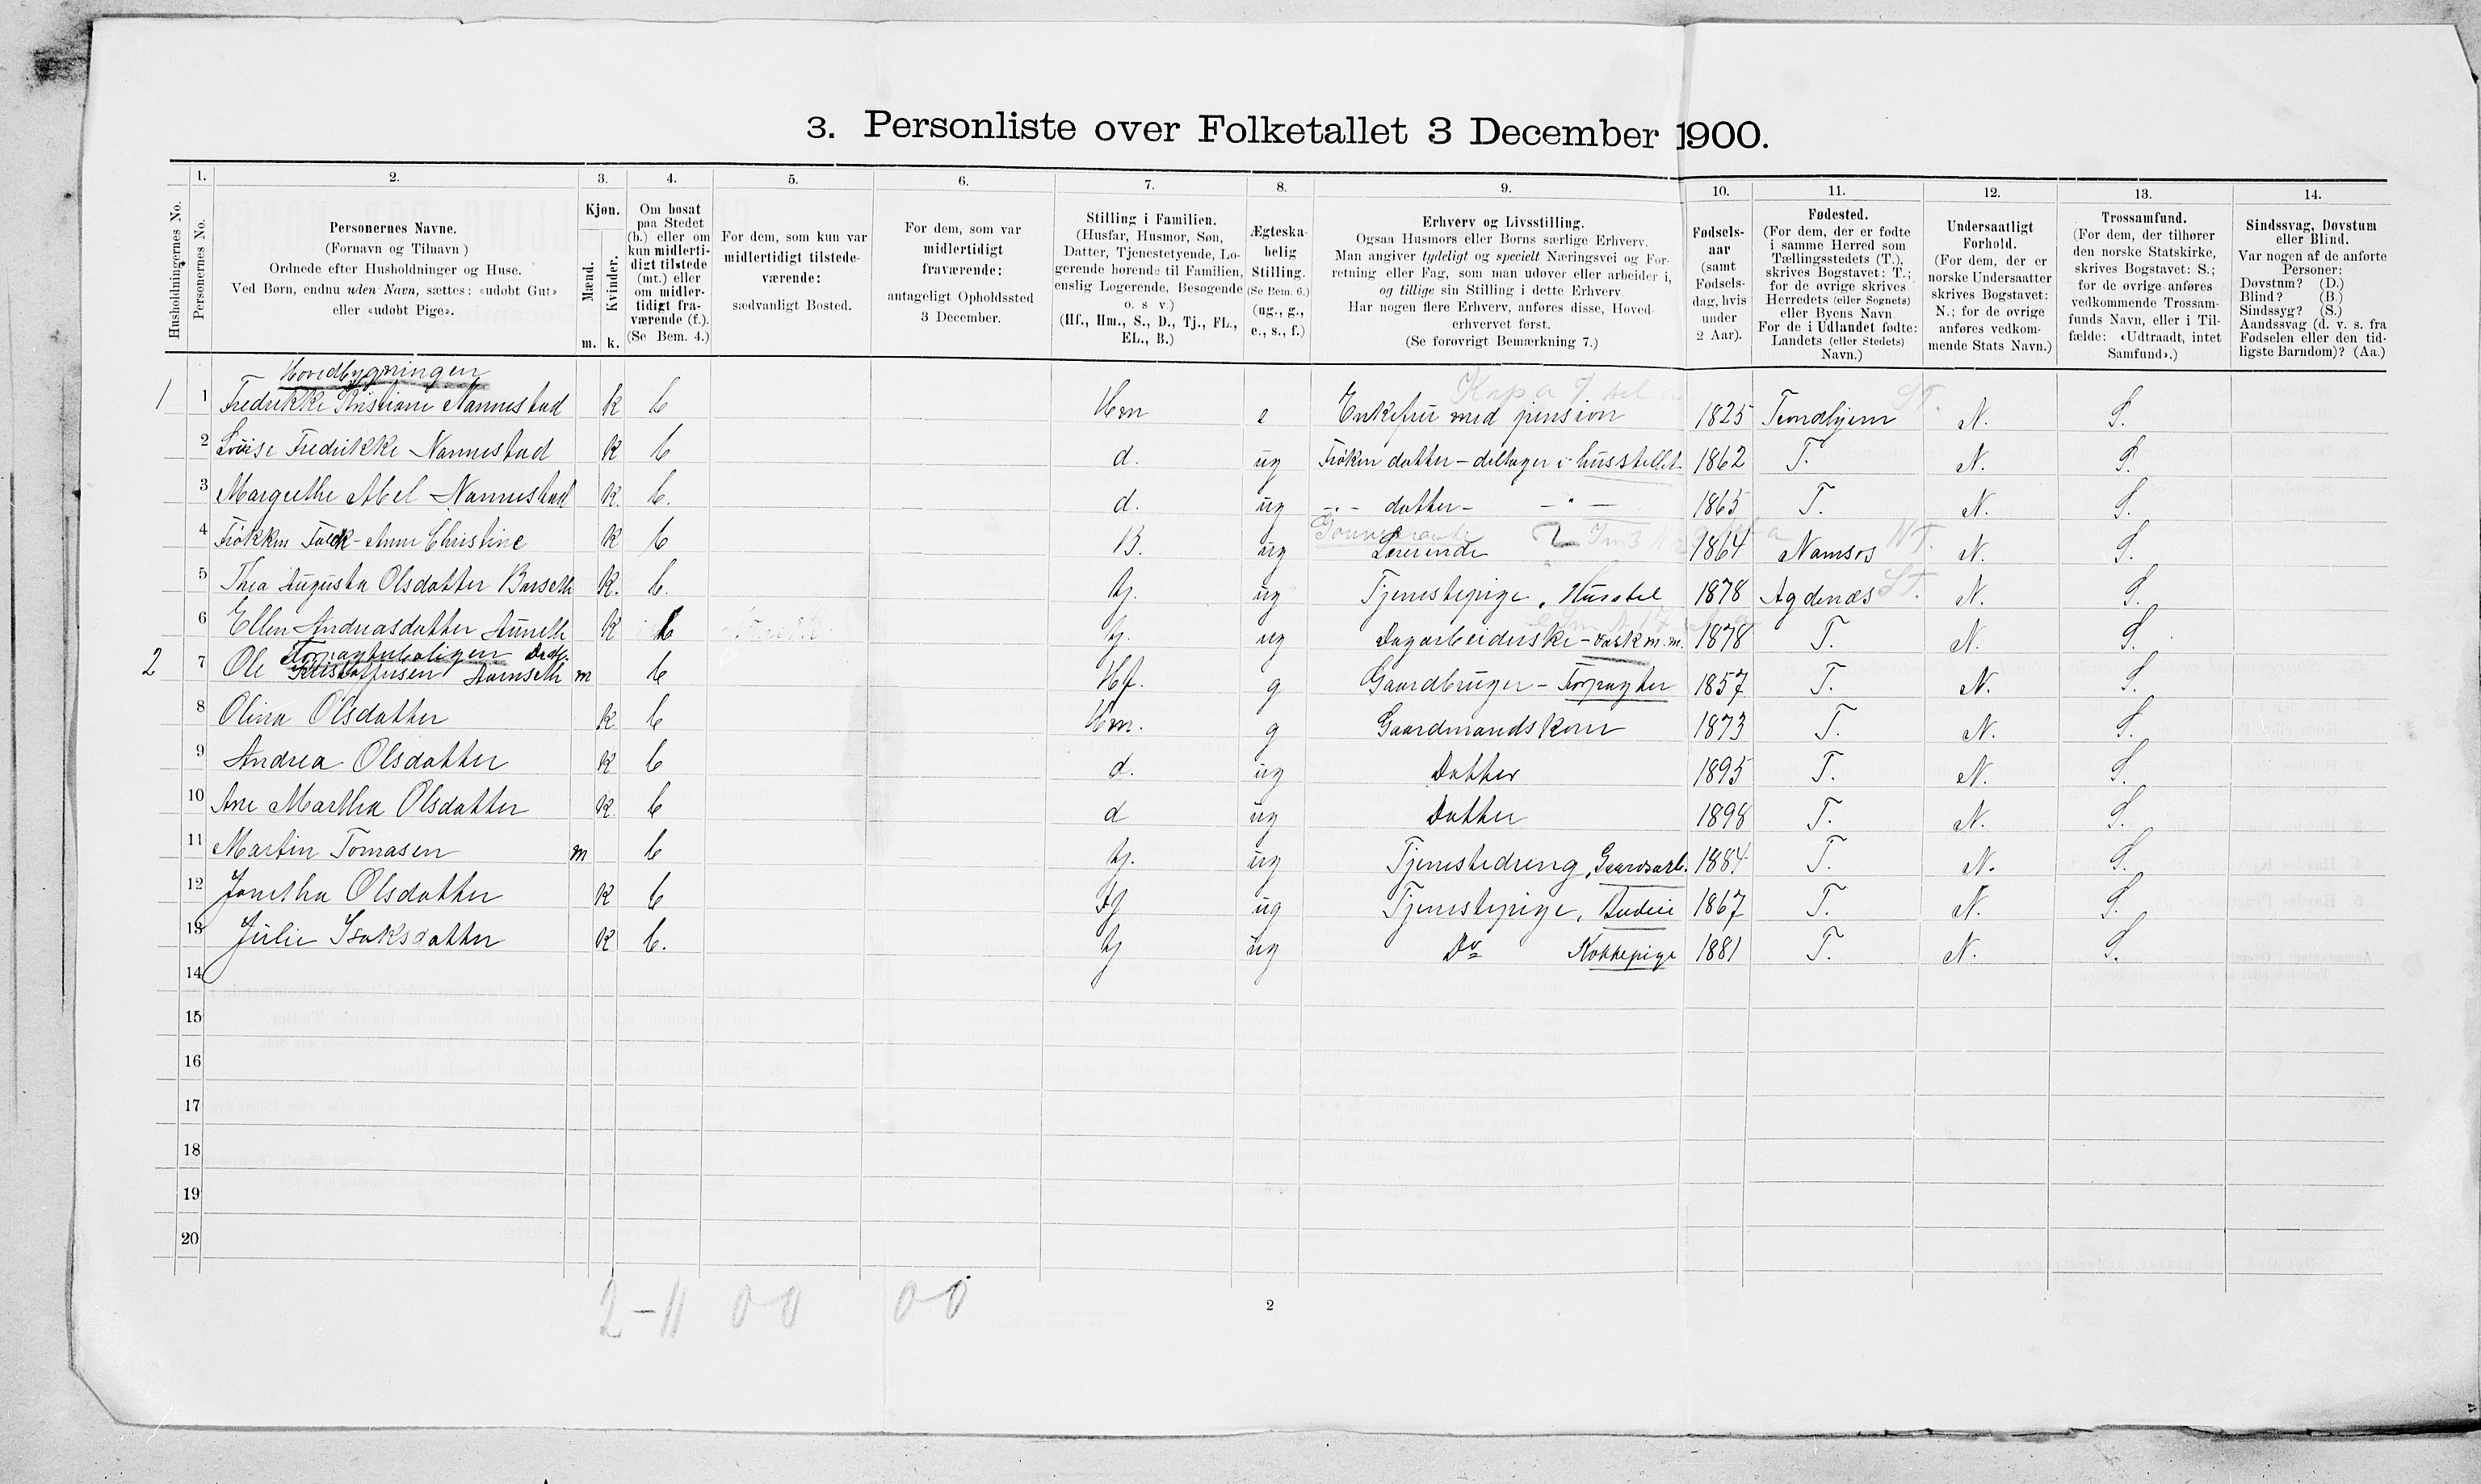 3. Personliste over Folketallet 3 December 1900.
1. 2. 3. 4. 5. 6. 7. 8. 9. 10. 11. 12. 13. 14.
Husholdningernes No.
Personernes No.
Personernes Navne.
(Fornavn og Tilnavn)
Ordnede efter Husholdninger og Huse.
Ved Børn, endnu uden Navn, sættes: «udøbt Gut»
eller «udøbt Pige».
Kjøn.
Mænd.
Kvinder.
m. k.
Om bosat
paa Stedet
(b.) eller om
kun midlerti-
digt tilstede
(mt.) eller
om midler-
tidigt fra-
værende (f.).
(Se Bem. 4.)
For dem, som kun var
midlertidigt tilstede-
værende:
sædvanligt Bosted.
For dem, som var
midlertidigt
fraværende:
antageligt Opholdssted
3 December.
Stilling i Familien.
(Husfar, Husmor, Søn,
Datter, Tjenestetyende, Lo-
gerende hørende til Familien,
enslig Logerende, Besøgende
o. s v.)
(Hf., Hm., S., D., Tj., FL.,
EL., B.)
Ægteska-
belig
Stilling.
(Se Bem. 6.)
(ug., g.,
e., s., f.)
Erhverv og Livsstilling.
Ogsaa Husmors eller Børns særlige Erhverv.
Man angiver tydeligt og specielt Næringsvei og For-
retning eller Fag, som man udøver eller arbeider i,
og tillige sin Stilling i dette Erhverv
Har nogen flere Erhverv, anføres disse, Hoved-
erhvervet først.
(Se forøvrigt Bemærkning 7.)
Fødsels-
aar
(samt
Fødsels-
dag, hvis
under
2 Aar).
Fødested.
(For dem, der er fødte
i samme Herred som
Tællingsstedets (T.),
skrives Bogstavet: T.;
for de øvrige skrives
Herredets (eller Sognets)
eller Byens Navn
For de i Udlandet fødte:
Landets (eller Stedets)
Navn.)
Undersaatligt
Forhold.
(For dem, der er
norske Undersaatter
skrives Bogstavet:
N.; for de øvrige
anføres vedkom-
mende Stats Navn.)
Trossamfund.
(For dem, der tilhører
den norske Statskirke,
skrives Bogstavet: S.;
for de øvrige anføres
vedkommende Trossam-
funds Navn, eller i Til-
fælde: «Udtraadt, intet
Samfund».)
Sindssvag, Døvstum
eller Blind.
Var nogen af de anførte
Personer:
Døvstum? (D.)
Blind? (B.)
Sindssyg? (S.)
Aandssvag (d. v. s. fra
Fødselen eller den tid-
ligste Barndom)? (Aa.)
Hovedbygningen
1 1 Fredrikke Kristiane Nannestad k b Hm e Enkefru med pension 1825 Trondhjem ST. N. S.
2 Lovise Fredrikke Nannestad k b d. ug Frøken datter - deltager i husstellet 1862 T. N. S.
3 Margrethe Abel Nannestad k. b. d. ug -"- datter - -"- 1865 T. N. S.
4 Frøkken Falck - Anne Christine k b B. ug Gouvernante Lærerinde 1864 Namsos NT. N. S.
5 Thea Augusta Olsdatter Barseth k. b. tj. ug Tjenestepige, Husstel 1878 Agdenæs ST. N. S.
6 Ellen Andreasdatter Auneth k b tj. ug Dagarbeiderske - vask m. m. 1878 T. N. S.
Forpagterboligen
2 7 Ole Kristoffersen m b Hf. g Gaardbruger - Forpagter 1857 T. N. S.
8 Olina Olsdatter k b Hm. g Gaardmandskone 1873 T. N. S.
9 Andrea Olsdatter k b d. ug Datter 1895 T. N. S.
10 Ane Martha Olsdatter k b d ug Datter 1898 T. N. S.
11 Martin Tomasen m b tj. ug Tjenestedreng, Gaardsarb. 1884 T. N. S.
12 Jonetha Olsdatter k b tj ug Tjenestepige, Budeie 1867 T. N. S.
13 Julie Isaksdatter k b. tj ug Do Kokkepige 1881 T. N. S.
14
15
16
17
18
19
20
2 - 11 0 0 0 0
2